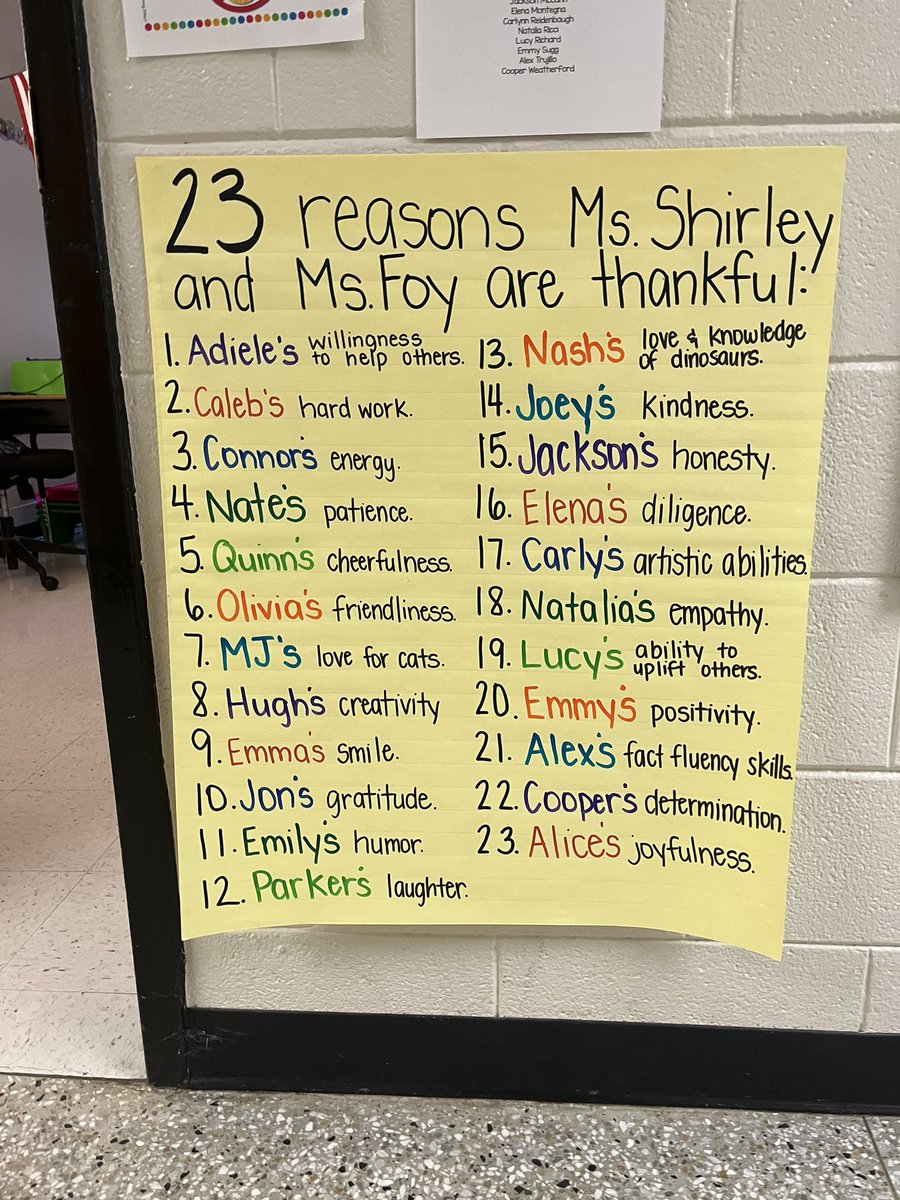 Elena Montegna
Carlynn Reidenbaugh
Natalia Ricci
Lucy Richard
Emmy Sugg
Alex Trujillo
Cooper Weatherford
23 reasons Ms. Shirley
and Ms. Foy are thankful:
1. Adiele's willingness
to help others.
2. Caleb's hard work.
3. Connor's energy.
4. Nate's patience.
5. Quinn's cheerfulness.
6. Olivia's friendliness.
7. MJ's love for cats.
8. Hugh's creativity
9. Emma's smile.
10. Jon's gratitude.
11. Emily's humor.
12. Parker's laughter.
13. Nash's love & knowledge
of dinosaurs.
14. Joey's kindness.
15. Jackson's honesty.
16. Elena's diligence.
17. Carly's artistic abilities.
18. Natalia's empathy.
19. Lucy's ability to
uplift others.
20. Emmy's positivity.
21. Alex's fact fluency skills.
22. Cooper's determination.
23. Alice's joyfulness.